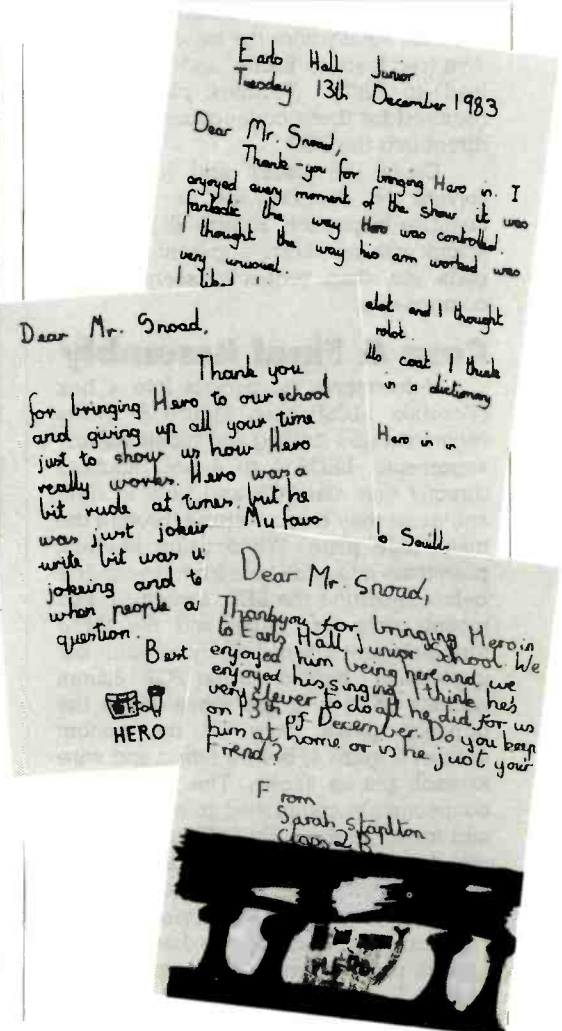 Earls Hall Junior
Tuesday 13th December 1983
Dear Mr. Snoad,
Thank-you for bringing Hero in. I
enjoyed every moment of the show it was
fantastic the way Hero was controlled.
I thought the way his arm worked was
very unusual.
I liked
and I thought
robot.
coat I think
in a dictionary
Hero in
Dear Mr. Snoad,
Thank you
for bringing Hero to our school
and giving up all your time
just to show us how Hero
really works. Hero was a
bit rude at times. but he
was just jokeir
My favo
write bit was w
jokeing and te
when people a
question.
Best
HERO
Dear Mr. Snoad,
Thankyou for bringing Hero in
to Earls Hall Junior School. We
enjoyed him being here, and we
enjoyed his singing. I think he's
very clever to do all he did for us
on 13th of December. Do you keep
him at home or is he just your
Friend?
From
Sarah Staplton
Class 2B